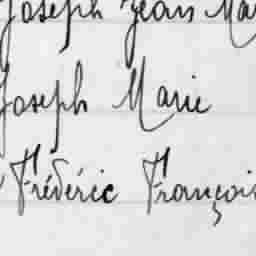 Joseph Jean Ma
Joseph Marie
Frédéric François